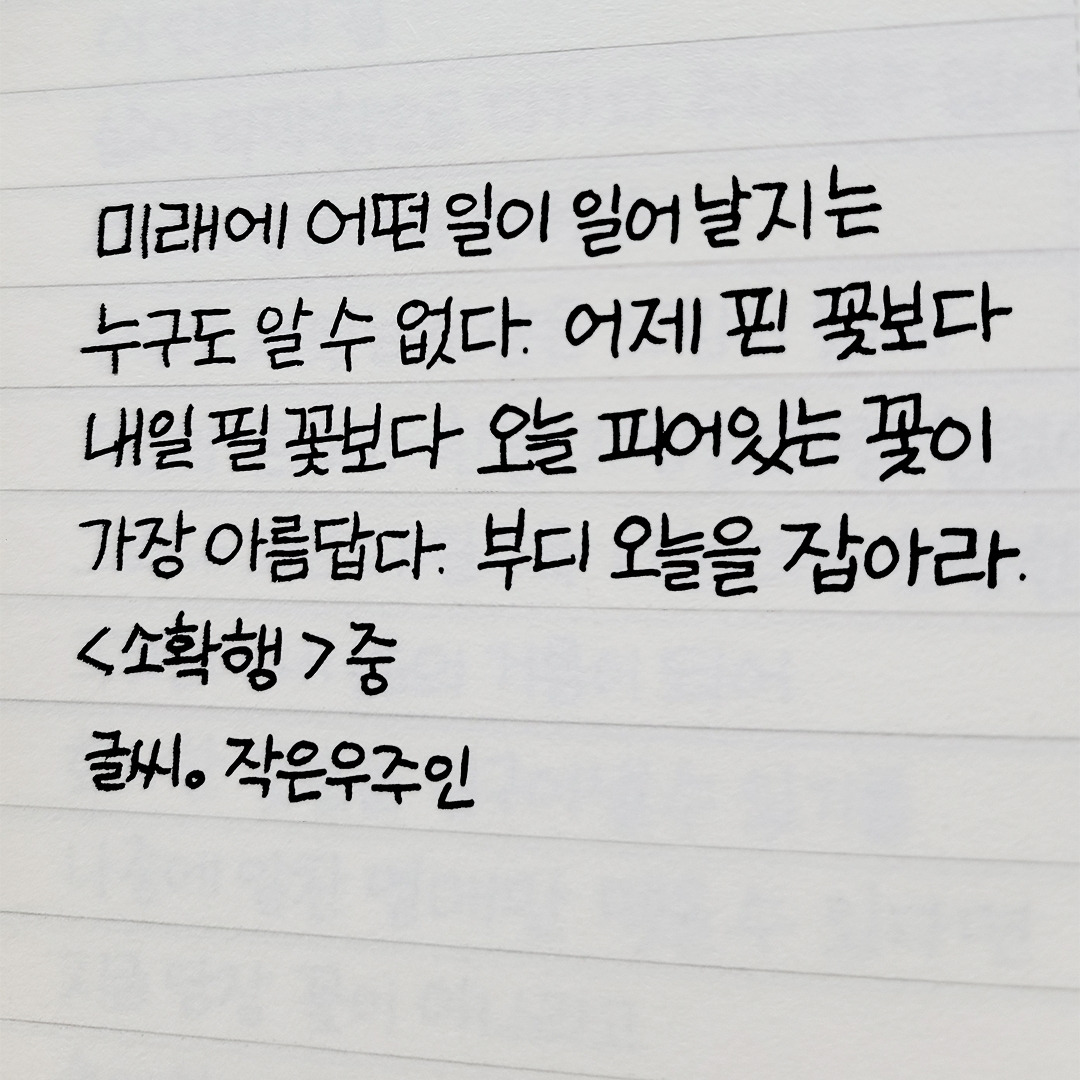 미래에 어떤 일이 일어날지는
누구도 알 수 없다. 어제 핀 꽃보다
내일 필 꽃보다 오늘 피어있는 꽃이
가장 아름답다. 부디 오늘을 잡아라.
<소확행> 중
글씨。 작은우주인